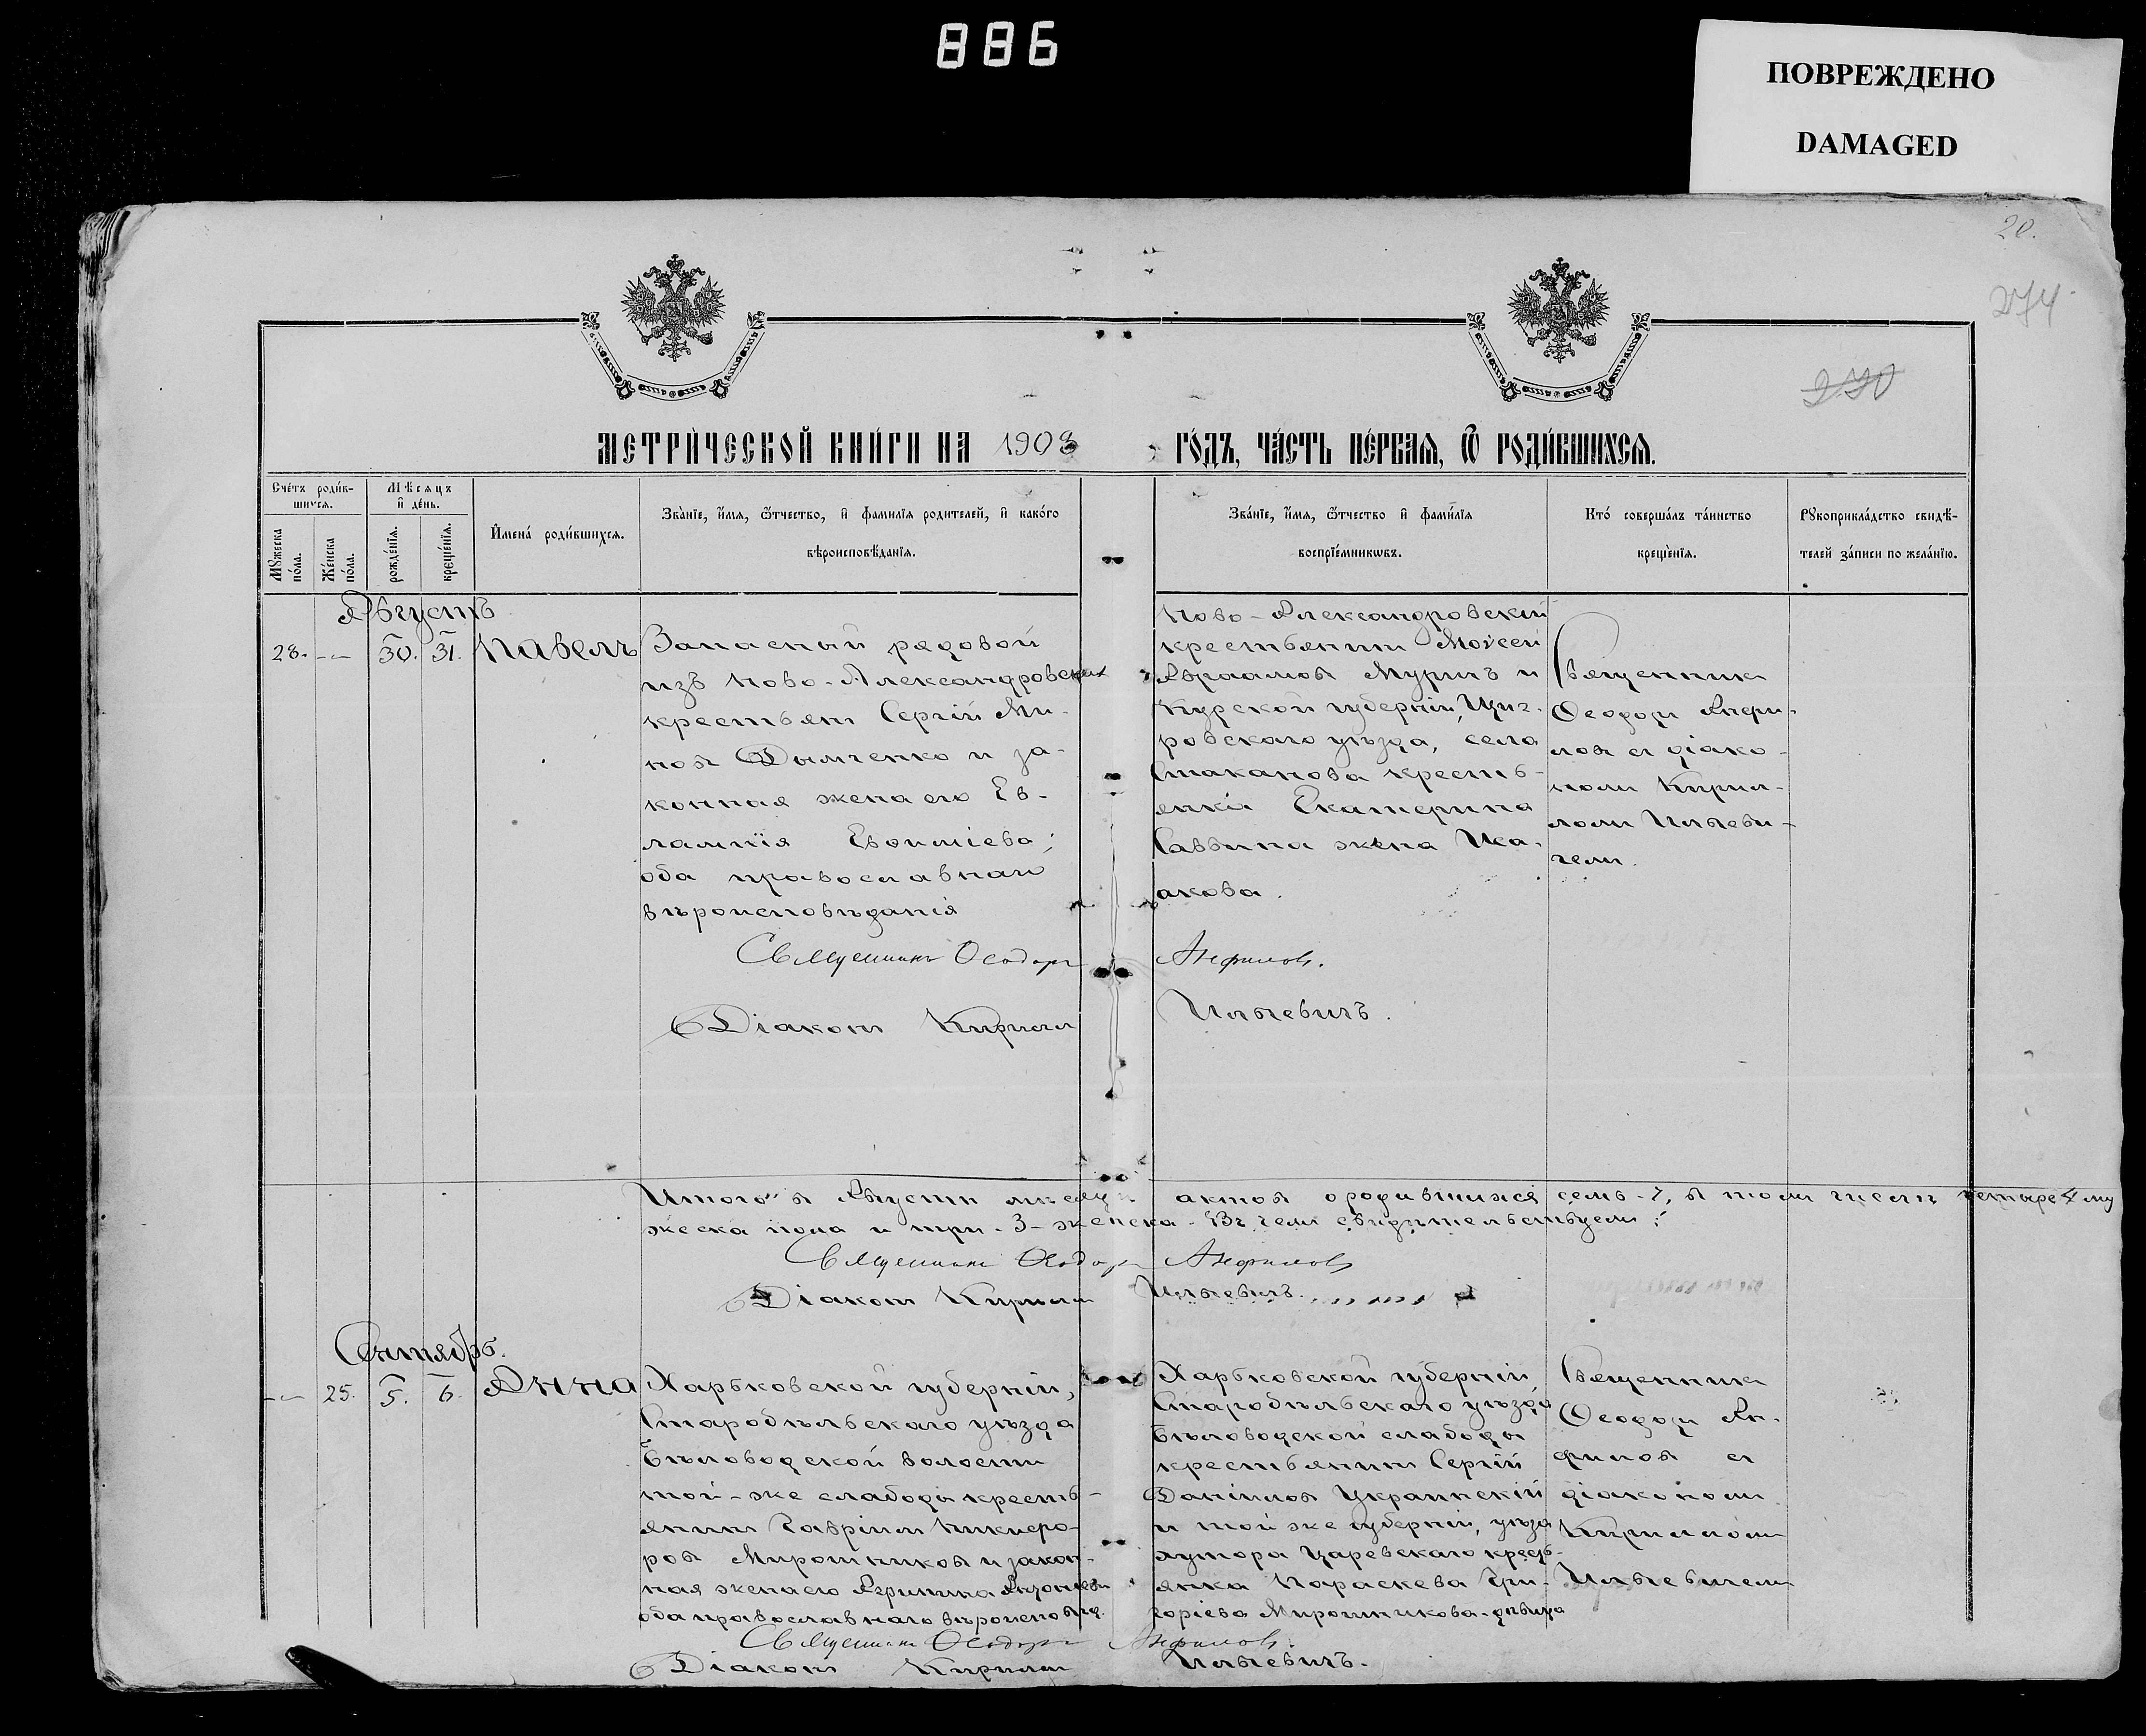 886
ПОВРЕЖДЕНО
DAMAGED
20.
274
270
МЕТРИ́ЧЕСКОЙ КНИ́ГИ НА 1908 ГО́ДЪ, ЧА́СТЬ ПЕ́РВАЯ, Ѿ РОДИ́ВШИХСЯ.
Счетъ роди́в-
шихся.
Мѣсяцъ
и҆ де́нь.
Мꙋжеска по́ла.
Же́нска по́ла.
рожде́нїя.
креще́нїя.
И҆мена̀ роди́вшихся.
Зва̀нїе, и҆́мя, ѻ҆́тчество, и҆ фами́лїя родителей, и҆ како́го
вѣроисповѣ́данїя.
Зва́нїе, и҆́мя, ѻ҆́тчество и҆ фами́лїя
воспрїе́мникѡвъ.
Кто́ соверша́лъ та́инство
креще́нїя.
Рꙋкоприкла́дство свидѣ́-
телей за́писи по жела́нїю.
Августъ
28. -- 30. 31. Павелъ
Запасный рядовой
изъ Ново-Александровских
крестьян Сергій Ми-
нов Дымченко и за-
конная жена его Ев-
лампія Евфиміева;
оба православнаго
вѣроисповѣданія
Ново-Александровскій
крестьянин Моѵсей
Авраамов Муринъ и
Курской губерніи, Щиг-
ровскаго уѣзда, села
Стаканова кресть-
янки Екатерина
Саввина жена Иса-
акова.
Священник
Феодор Анфи-
лов с діако-
ном Кирил-
лом Ильеви-
чем.
Священникъ Ѳеодоръ Анфилов.
Діакон Кирилл Ильевичъ.
Итого в Августѣ мѣсяцѣ актов о родившихся семь-7, в том числѣ четыре 4 му
жеска пола и три-3-женска. Въ чем свидѣтельствуем:
Священник Ѳеодоръ Анфилов
Діакон Кирилл Ильевичъ.
Сентябрь.
-- 25. 5. 6. Анна
Харьковской губерніи,
Старобѣльскаго уѣзда
Бѣловодской волости
той-же слабоды кресть-
янин Гавріил Никифо-
ров Мирошников и закон-
ная жена его
оба православнаго вѣроисповѣд.
Харьковской губерніи,
Старобѣльскаго уѣзда
Бѣловодской слабоды
крестьянин Сергій
Даніилов Украинскій
и той же губерніи, уѣзда
хутора Царевскаго кресть-
янка Параскева Гри-
горіева Мирошникова-дѣвица
Священник
Феодор Ан-
филов с
діаконом
Кириллом
Ильевичем
Священник Ѳеодоръ Анфилов.
Діакон Кирилл Ильевичъ.